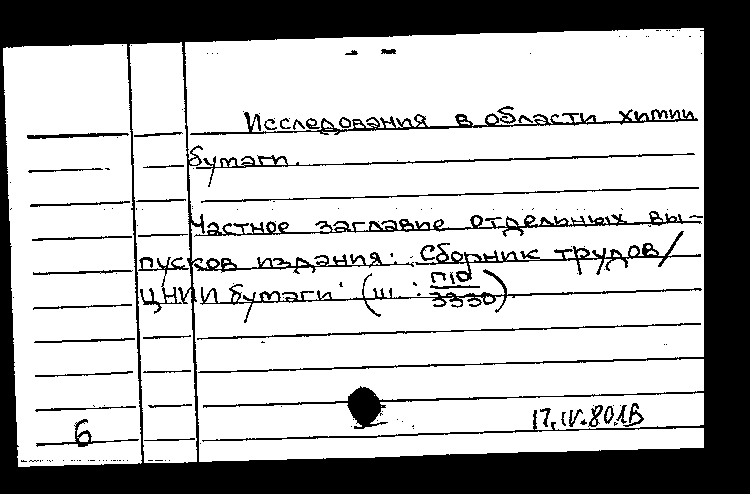 Исследования в области химии
бумаги.
Частное заглавие отдельных вы-
пусков издания: Сборник трудов/
ЦНИИ бумаги (ш.: П10/3330).
6
17.IV.80